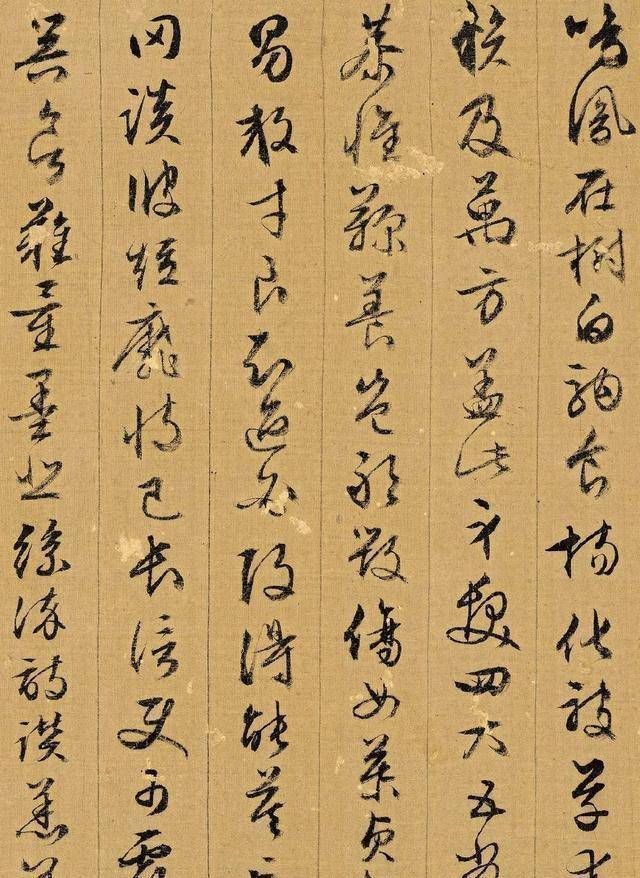 鳴鳳在樹白駒食場化被草木
賴及萬方蓋此身髮四大五常
恭惟鞠養豈敢毀傷女慕貞
男效才良知過必改得能莫
罔談彼短靡恃己長信使可覆
器欲難量墨悲絲染詩讚羔羊